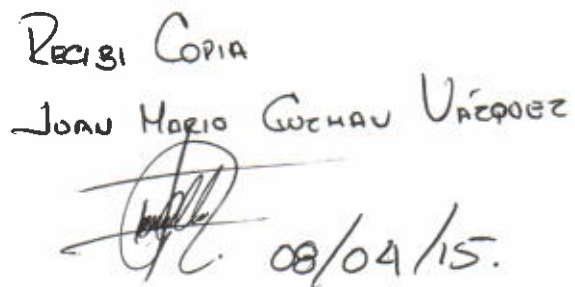 Recibi Copia
Juan Mario Guzman Vázquez
08/04/15.